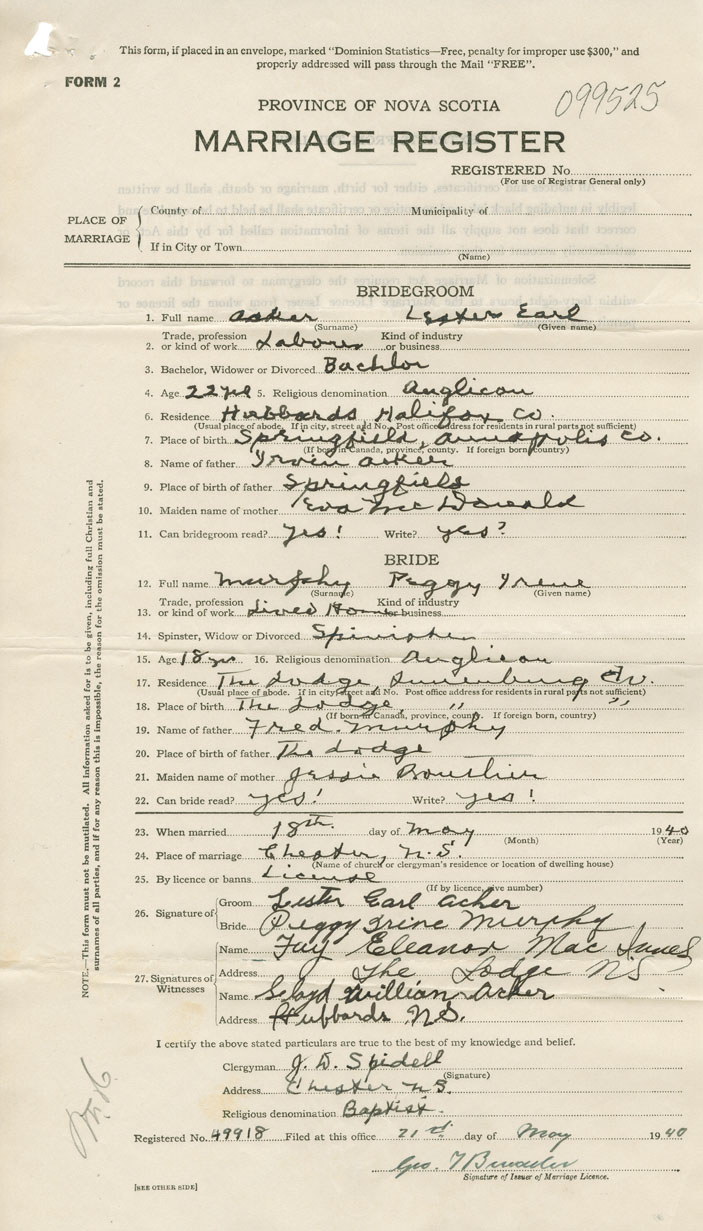 This form, if placed in an envelope, marked "Dominion Statistics—Free, penalty for improper use $300," and
properly addressed will pass through the Mail "FREE".
FORM 2
099525
PROVINCE OF NOVA SCOTIA
MARRIAGE REGISTER
REGISTERED No.
(For use of Registrar General only)
PLACE OF MARRIAGE
County of Municipality of
If in City or Town
(Name)
BRIDEGROOM
1. Full name Acker Lester Earl
(Surname) (Given name)
2. Trade, profession or kind of work Laborer Kind of industry or business
3. Bachelor, Widower or Divorced Bachlor
4. Age 22 yrs 5. Religious denomination Anglican
6. Residence Hubbards Halifax Co.
(Usual place of abode. If in city, street and No. Post office address for residents in rural parts not sufficient)
7. Place of birth Springfield, Annapolis Co.
(If born in Canada, province, county. If foreign born, country)
8. Name of father Irvin Acker
9. Place of birth of father Springfield
10. Maiden name of mother Eva McDonald
11. Can bridegroom read? yes! Write? yes?
BRIDE
12. Full name Murphy Peggy Irene
(Surname) (Given name)
13. Trade, profession or kind of work Lived Home Kind of industry or business
14. Spinster, Widow or Divorced
15. Age 18 yrs 16. Religious denomination Anglican
17. Residence The Lodge, Lunenburg
(Usual place of abode. If in city, street and No. Post office address for residents in rural parts not sufficient)
18. Place of birth The Lodge, " "
(If born in Canada, province, county. If foreign born, country)
19. Name of father Fred. Murphy
20. Place of birth of father The Lodge
21. Maiden name of mother Jessie Boutlier
22. Can bride read? yes! Write? yes!
23. When married 18th. day of May 1940
(Month) (Year)
24. Place of marriage Chester, N.S.
(Name of church or clergyman's residence or location of dwelling house)
25. By licence or banns License
(If by licence, give number)
26. Signature of
Groom Lester Earl Acker
Bride Peggy Irine Murphy
27. Signatures of Witnesses
Name Fay Eleanor Mac Innes
Address The Lodge NS
Name Lloyd William Acker
Address Hubbards N.S.
I certify the above stated particulars are true to the best of my knowledge and belief.
Clergyman J. D. Spidell
(Signature)
Address Chester N.S.
Religious denomination Baptist.
Registered No. 49918 Filed at this office 21st day of May 1940
Geo. T
Signature of Issuer of Marriage Licence.
[SEE OTHER SIDE]
NOTE.—This form must not be mutilated. All information asked for is to be given, including full Christian and
surnames of all parties, and if for any reason this is impossible, the reason for the omission must be stated.